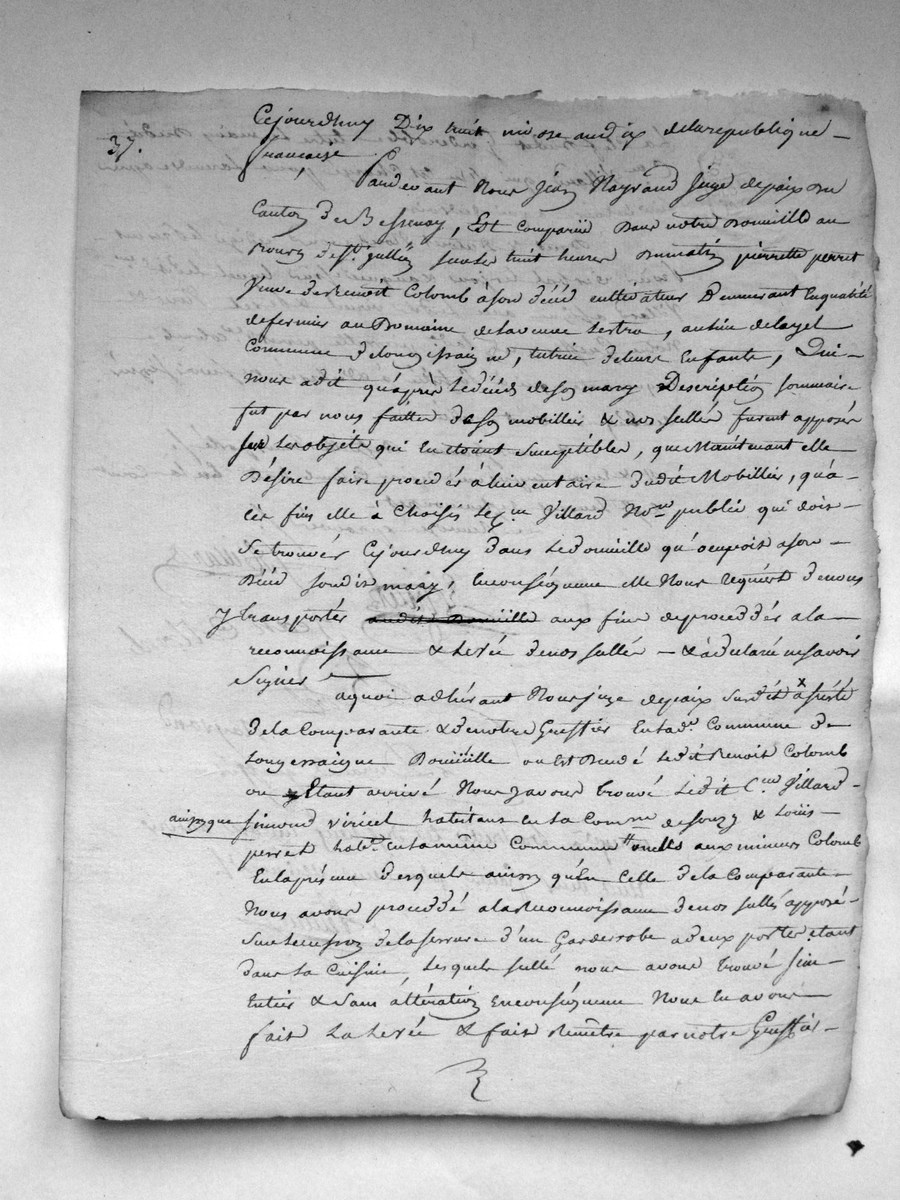 37.
Cejourdhuy Dix huit nivose an dix de la republique
francaise
Pardevant Nous jean Nayrand juge depaix du
Canton de Bessenay, Est Comparüe Dans notre Domicille au
Bourg de St. jullien sur les huit heures Dumatin pierrette perret
Veuve de Benoit Colomb a son décéd cultivateur Demeurant En qualité
de fermier au Domaine de la veuve
Commune de longessaigne, tutrice de leurs Enfants, Qui
nous a dit qu'après le décéds de son mary Description sommaire
fut par nous faitte de son mobillier & nos scellés furent apposés
sur les objets qui En étoient susceptibles, que Maintenant elle
Désire faire proceder à l'inventaire dudit Mobillier, qu'à
ces fins elle à choisis le Cen Villard Nore publicq qui doit
se trouver Cejourdhuy dans le domicille qu'ocupoit a son
Décéd sondit mary, En conséquence elle Nous requiert de nous
y transporter audit Domicille aux fins de proceder a la
reconnoissance & levée de nos scellés & a déclaré ne savoir
Signer
aquoi adhérant Nous juge depaix susdit assisté
de la Comparante & de notre Greffier En lade. Commune de
Longessaigne Domicille ou Est Décédé ledit Benoit Colomb
ou Etant arrivé Nous y avons trouvé ledit Cen Villard
ainsy que simond viricel habitant en la Comme de souzy & Loüis
perret habt. en la même Commune oncles aux mineurs Colomb
En la présence desquels ainsy qu'En Celle de la Comparante
Nous avons procéddé a la Reconnoissance de nos scellés apposés
sur de la serrure d'un Garderobe a deux portes étant
dans la Cuisine, lesquels scellé nous avons trouvé sain
Entier & sans altération En conséquence Nous en avons
fait la levée & fait Remettre par notre Greffier